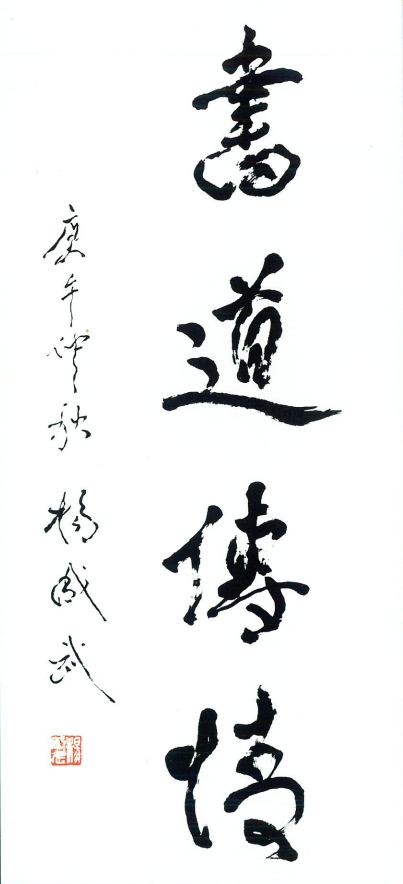 書道傳情
庚午仲秋 楊成武